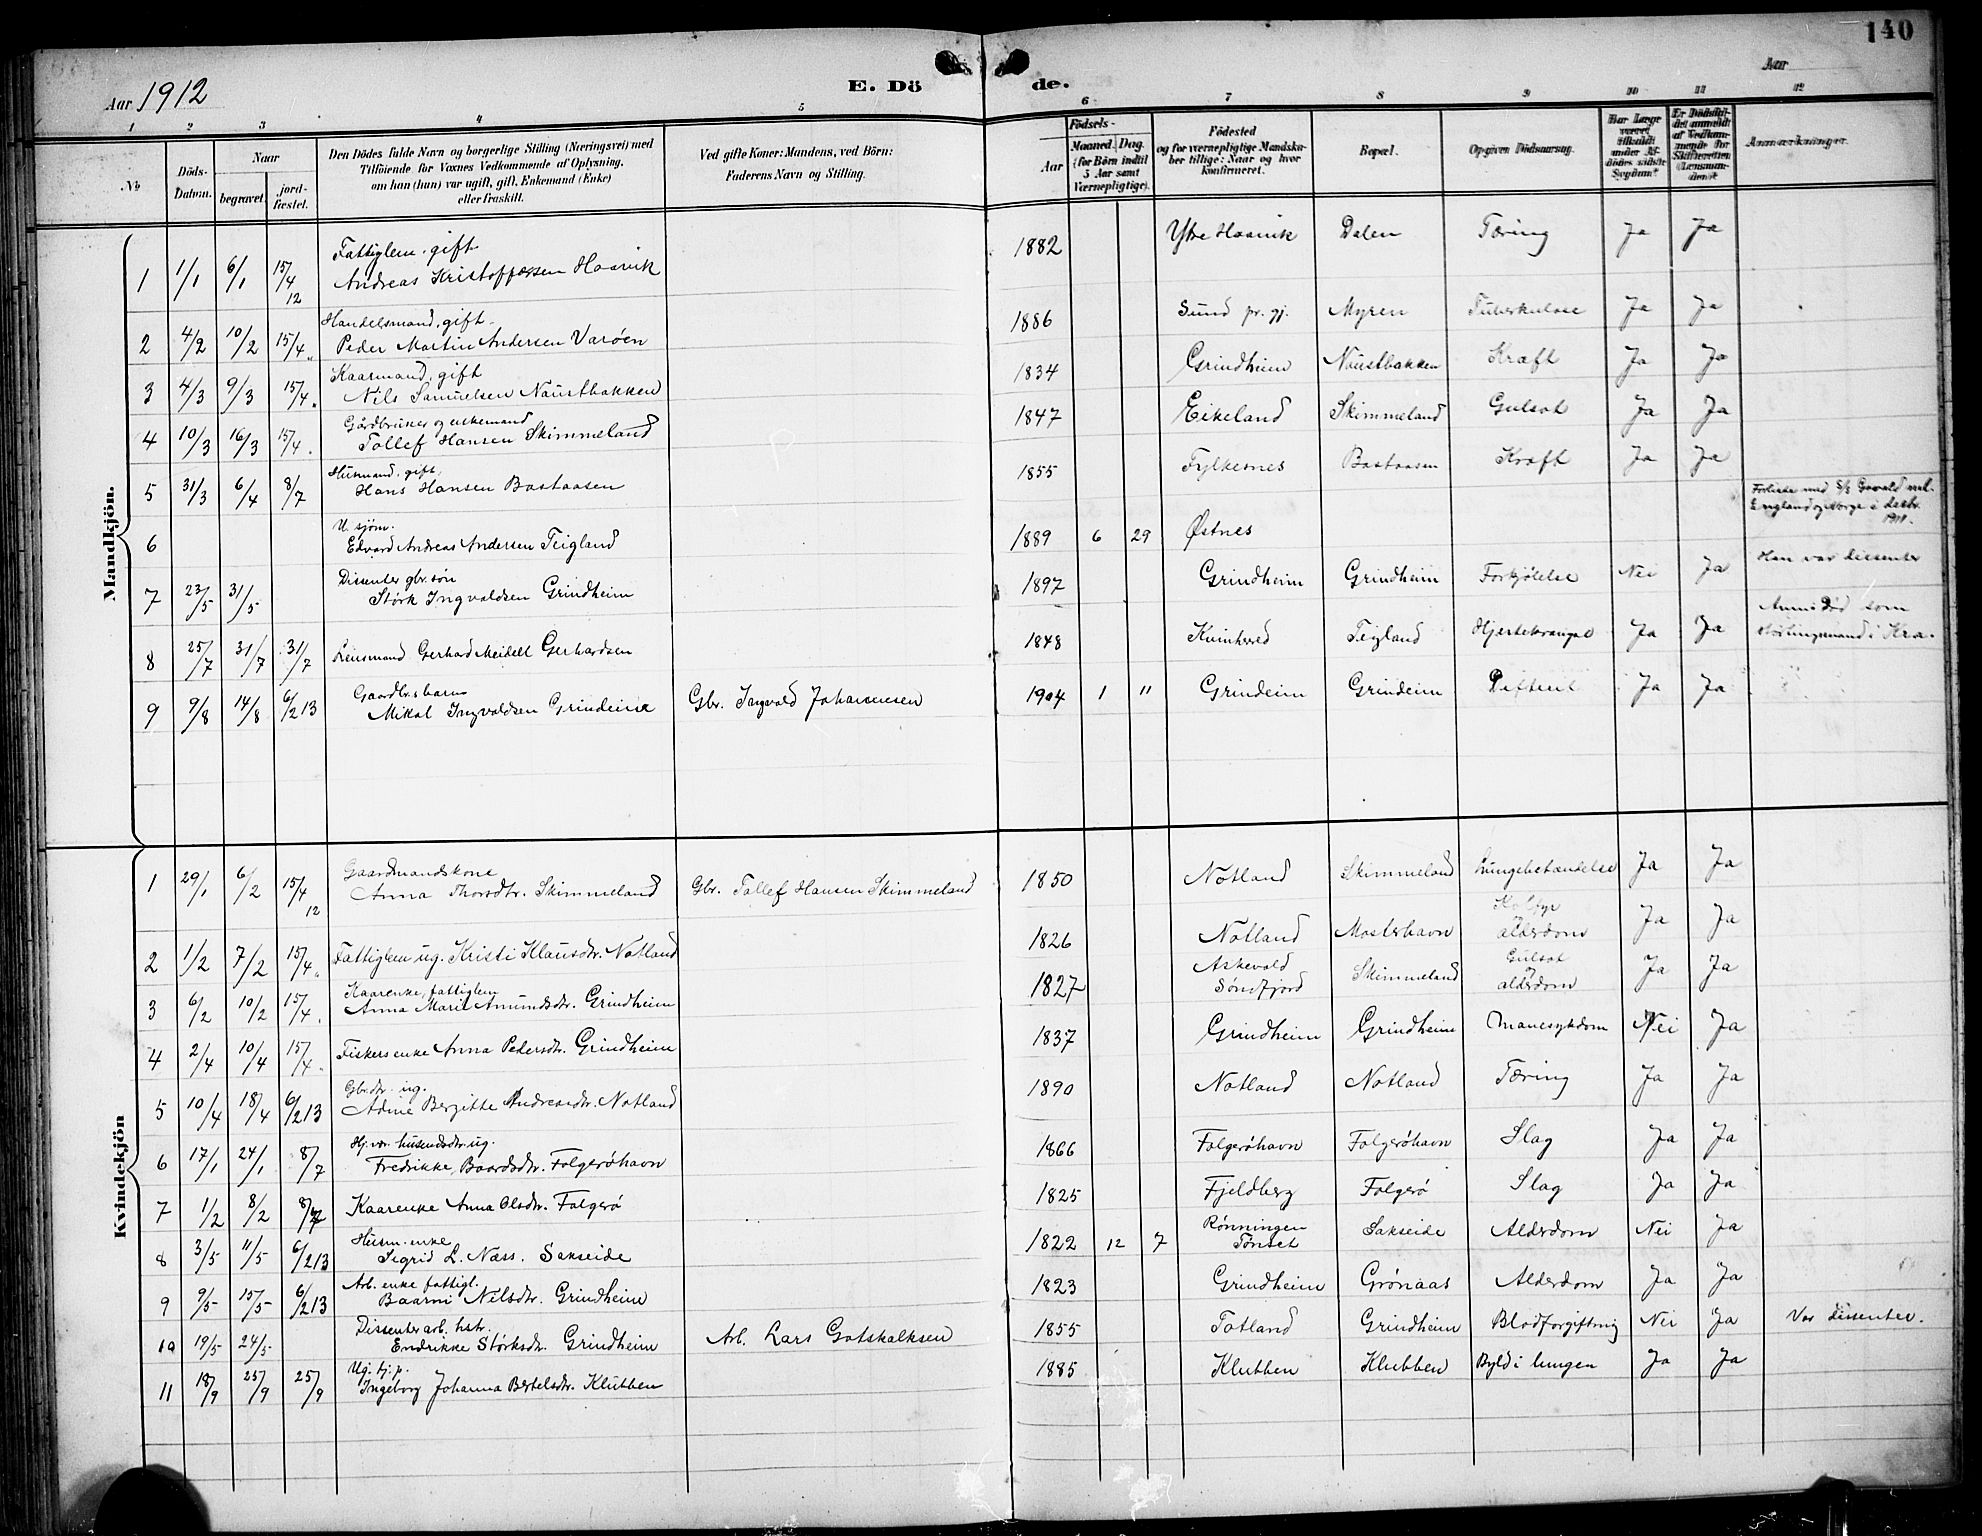 140
Aar 1912
E. Dö
de.
Aar
1 2 3 4 5 6 7 8 9 10 11 12
No
Döds-Datum.
Naar
begravet.
jord-fæstet.
Den Dödes fulde Navn og borgerlige Stilling (Næringsvei) med
Tilföiende for Voxnes Vedkommende af Oplysning,
om han (hun) var ugift, gift, Enkemand (Enke)
eller fraskilt.
Ved gifte Koner: Mandens, ved Börn:
Faderens Navn og Stilling.
Födsels-
Aar
Maaned. Dag.
(for Börn indtil
5 Aar samt
Værnepligtige).
Födested
og for værnepligtige Mandska-
ber tillige: Naar og hvor
konfirmeret.
Bopæl.
Opgiven Dödsaarsag.
Anmærkninger.
Mandkjön.
Fattiglem, gift
1 1/1 6/1 15/4 12 Andreas Kristoffersen Haavik 1882 Ytre Haavik Dalen Tæring Ja Ja
Handelsmand, gift
2 4/2 10/2 15/4 " Peder Martin Andersen Varöen 1886 Sund pr. gj. Myren Tuberkulose Ja Ja
Kaarmand, gift
3 4/3 9/3 15/4 " Nils Samuelsen Naustbakken 1834 Grindheim Naustbakken Kræft Ja Ja
Gårdbruker og enkemand
4 10/3 16/3 15/4 " Tollef Hansen Skimmeland 1847 Eikeland Skimmeland Gulsot Ja Ja
Husmand, gift,
5 31/3 6/4 8/7 Hans Hansen Bastaasen 1855 Fylkesnes Bastaasen Kræft Ja Ja
U. sjöm.
6 Edvard Andreas Andersen Teigland 1889 6 29 Østnes
Forliste med S/S mel.
England og Norge i
1911.
Dissenter gbr. sön
7 23/5 31/5 Störk Ingvaldsen Grindheim 1897 Grindheim Grindheim Forkjölelse Nei Ja Han var dissenter
8 25/7 31/7 31/7 Lensmand Gerhad Meidell Gerhardsen 1848 Kvinherred Teigland Hjertekrampe Ja Ja
död som
i Kra.
Gaardbr.s barn
9 9/8 14/8 6/2 13 Mikal Ingvaldsen Grindeim Gbr. Ingvald Johannesen 1904 1 11 Grindeim Grindeim Difterit Ja Ja
Kvindekjön
Gaardmandskone
1 29/1 6/2 15/4 12 Anna Thorsdtr. Skimmeland Gbr. Tollef Hansen Skimmeland 1850 Notland Skimmeland Lungebetændelse Ja Ja
2 1/2 7/2 15/4 " Fattiglem ug. Kristi Klausdtr. Notland 1826 Notland Mosterhavn alderdom Ja Ja
Kaarenke, fattiglem
3 6/2 10/2 15/4 " Anna Marie Amundsdtr. Grindheim 1827 Askevold Söndfjord Skimmeland Gulsot og alderdom Ja Ja
4 2/4 10/4 15/4 " Fiskers enke Anna Pedersdtr. Grindheim 1837 Grindheim Grindheim Mavesykdom Nei Ja
Gbr.dtr. ug.
5 10/4 18/4 6/2 13 Adine Bergitte Andreasdtr. Notland 1890 Notland Notland Tæring Ja Ja
Hj. vær. husmdsdtr. ug.
6 17/1 24/1 8/7 Fredrikke Baardsdtr. Folgeröhavn 1866 Folgeröhavn Folgeröhavn Slag Ja Ja
7 1/2 8/2 8/7 Kaarenke Anna Olsdtr. Folgerö 1825 Fjeldberg Folgerö Slag Ja Ja
Husm. enke
8 3/5 11/5 6/2 13 Sigrid L. Næss. Sakseide 1822 12 7 Rönningen Tönset Sakseide Alderdom Nei Ja
Arb. enke fattigl.
9 9/5 15/5 6/2 13 Baarni Nilsdtr. Grindheim 1823 Grindheim Grönaas Alderdom Ja Ja
Dissenter arb. hstr.
10 19/5 24/5 Endrikke Störksdtr. Grindheim Arb. Lars Gotskalksen 1855 Totland Grindheim Blodforgiftnig Nei Ja Var dissenter.
Ug. tj. p.
11 18/9 25/9 25/9 Ingeborg Johanna Bertelsdtr. Klubben 1885 Klubben Klubben Byld i lungen Ja Ja